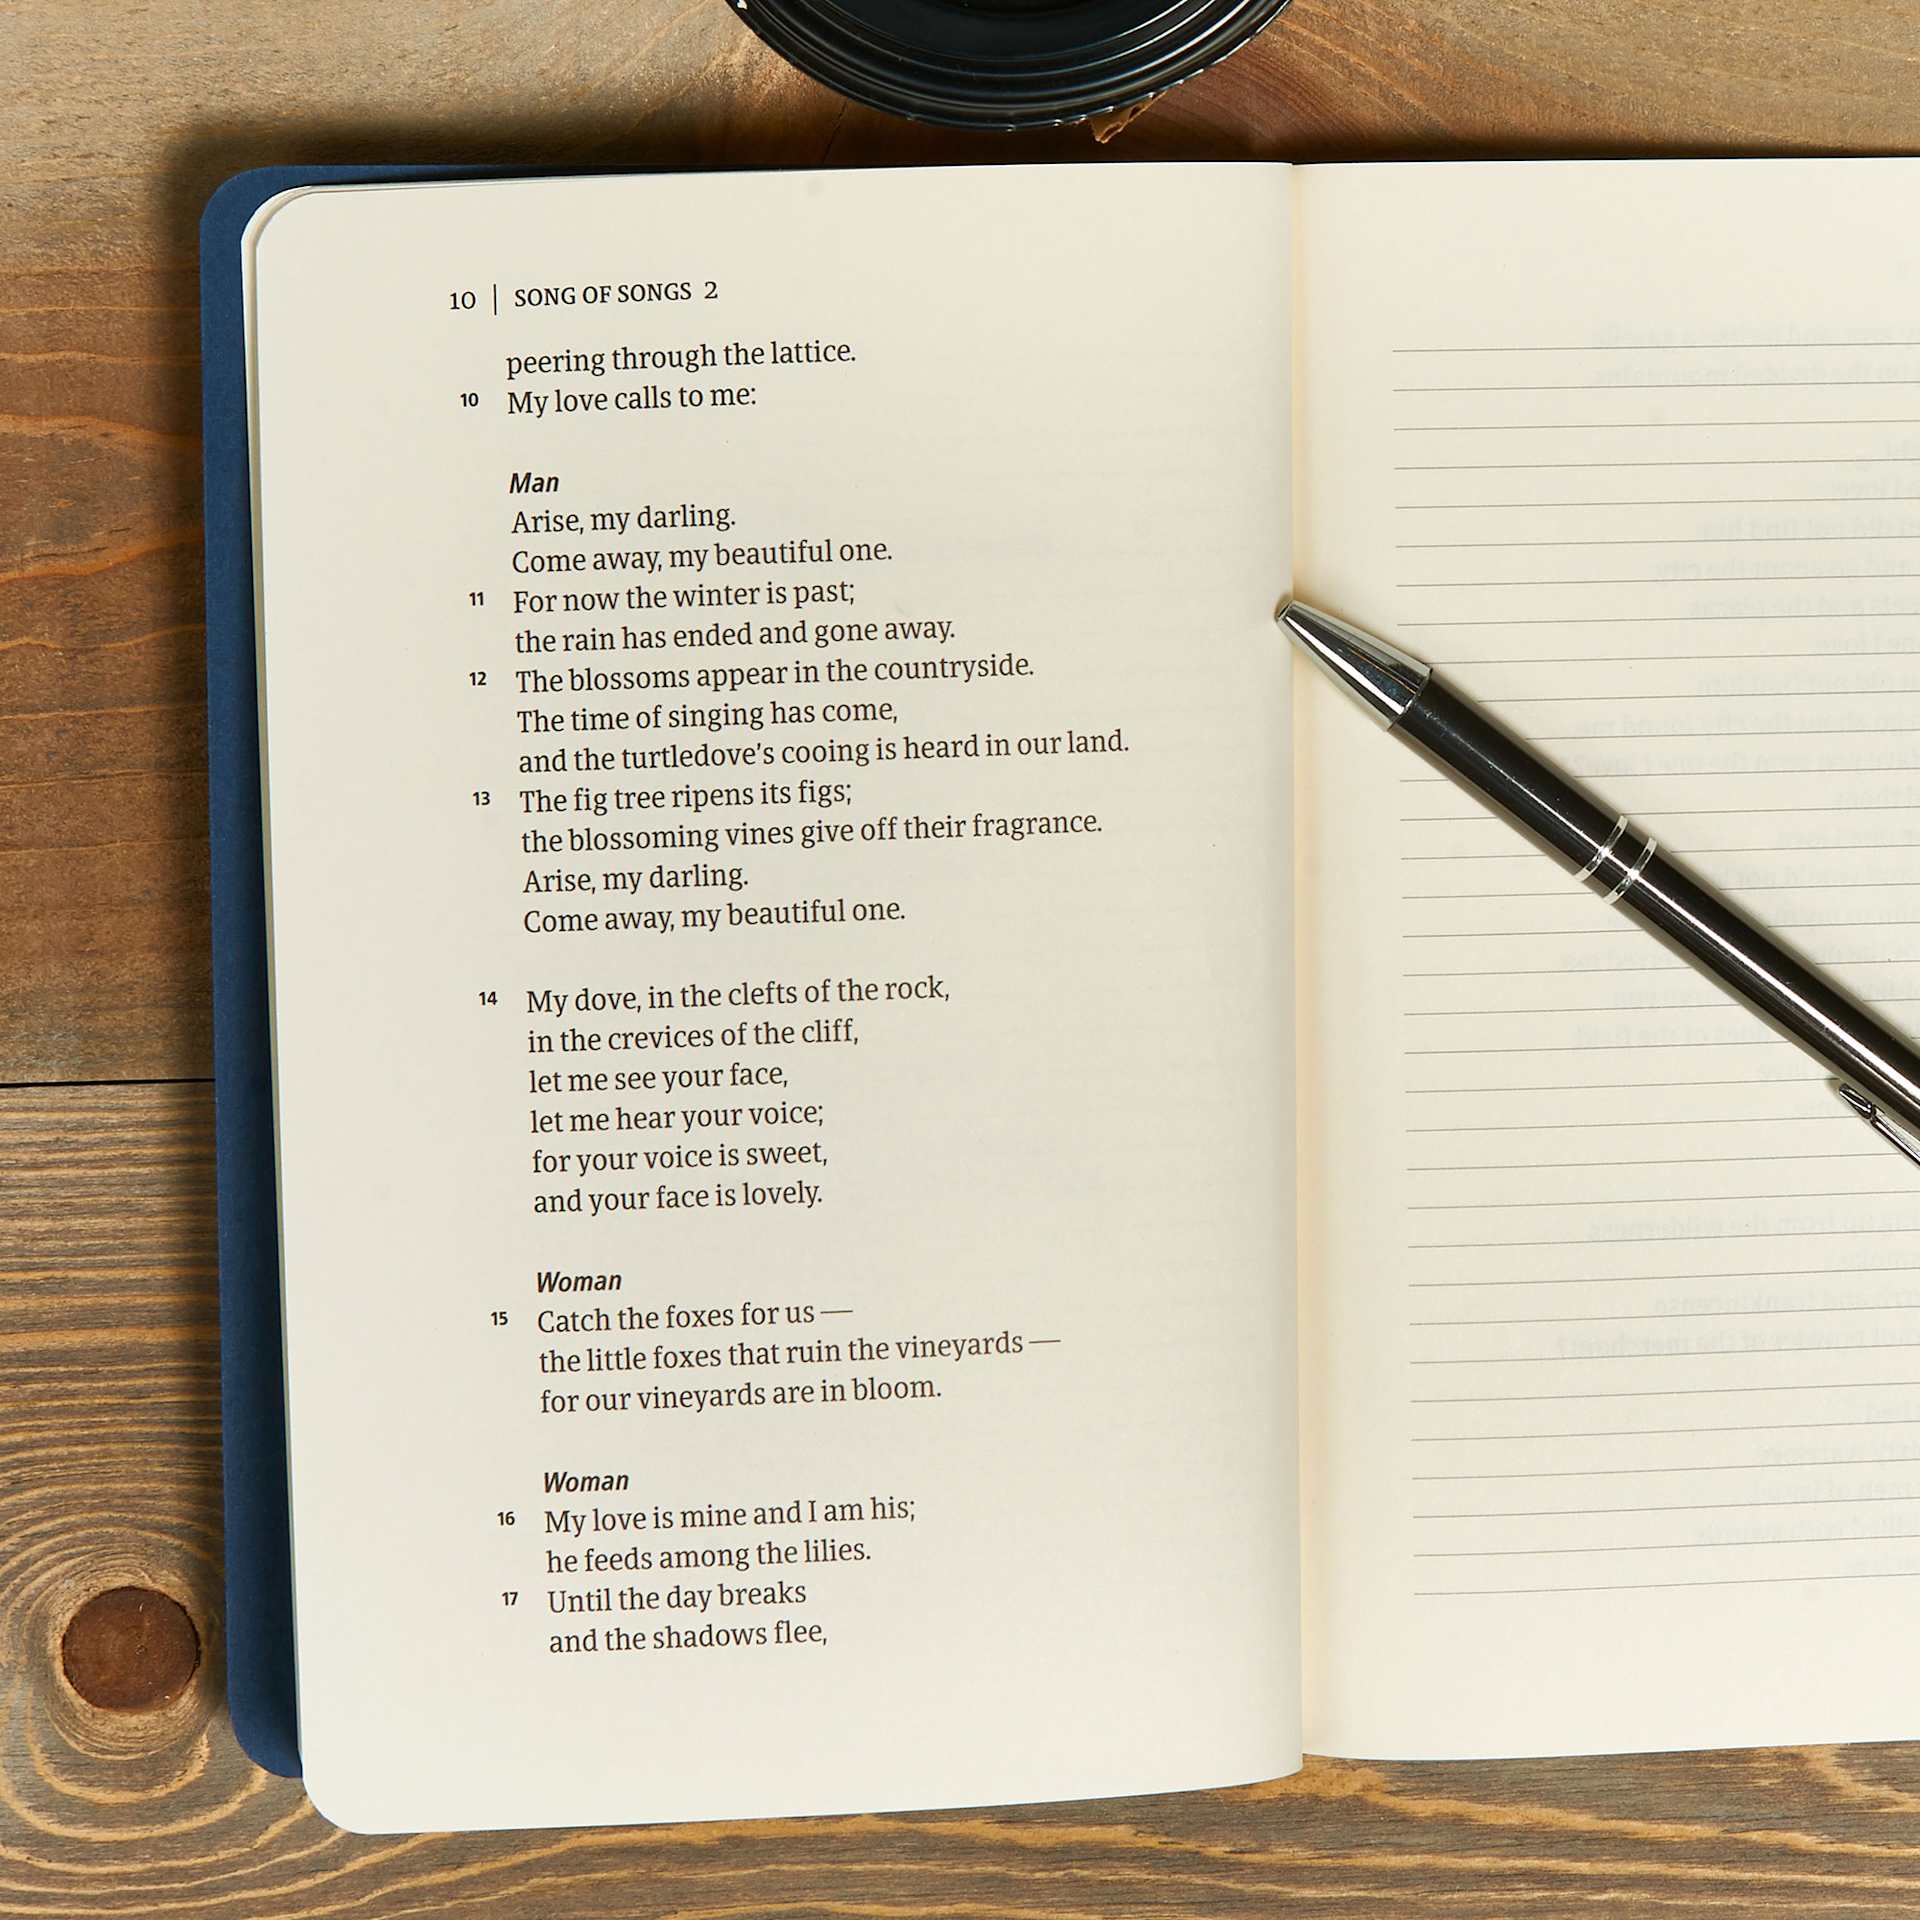 10 | SONG OF SONGS 2
peering through the lattice.
10 My love calls to me:
Man
Arise, my darling.
Come away, my beautiful one.
11 For now the winter is past;
the rain has ended and gone away.
12 The blossoms appear in the countryside.
The time of singing has come,
and the turtledove’s cooing is heard in our land.
13 The fig tree ripens its figs;
the blossoming vines give off their fragrance.
Arise, my darling.
Come away, my beautiful one.
14 My dove, in the clefts of the rock,
in the crevices of the cliff,
let me see your face,
let me hear your voice;
for your voice is sweet,
and your face is lovely.
Woman
15 Catch the foxes for us —
the little foxes that ruin the vineyards —
for our vineyards are in bloom.
Woman
16 My love is mine and I am his;
he feeds among the lilies.
17 Until the day breaks
and the shadows flee,